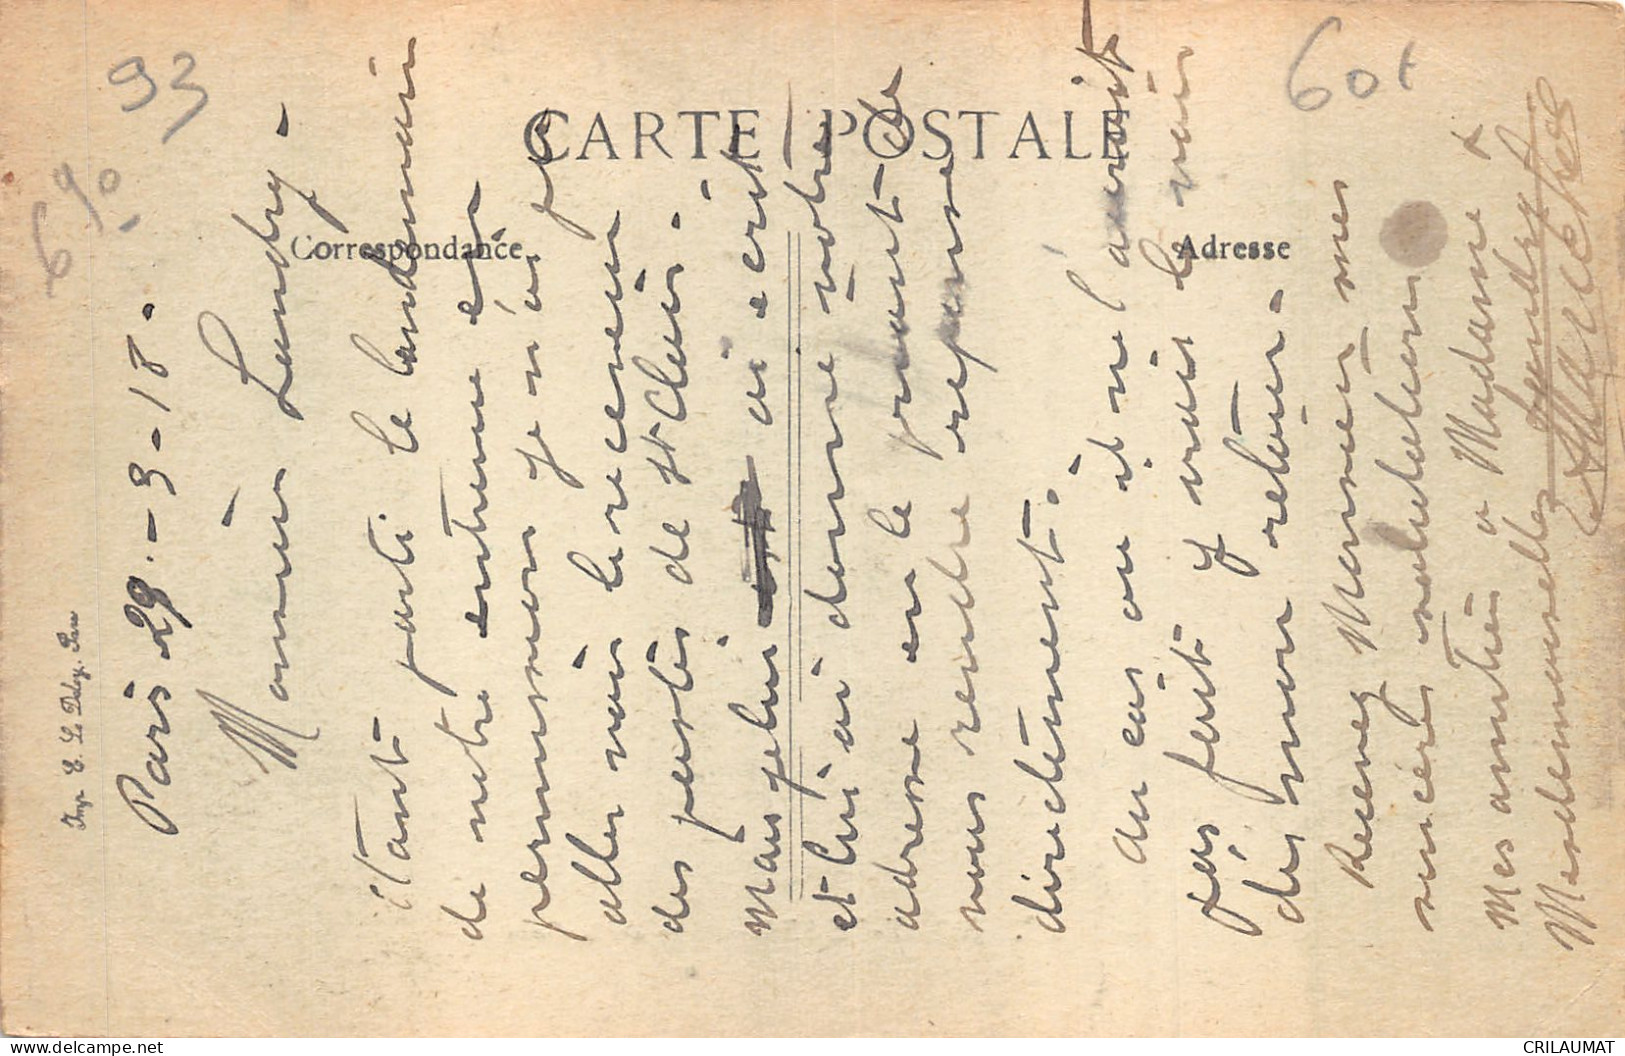 93
6 90
60x
CARTE POSTALE
Correspondance
Adresse
Imp. E. Le Deley, Paris
Paris 29-3-18.
Monsieur Landry-
Etant parti le lendemain
de notre entrevue en
permission je n'ai pu
aller voir le receveur
des postes de St Clair.
Mais je lui ai écrit
et lui ai donné votre
adresse en le priant de
vous rendre reponse
directement.
Au cas ou il ne l'aurait
pas fait j'irais le voir
dès mon retour.
Recevez Monsieur mes
sincères salutations
Mes amitiés a Madame &
Mesdemoiselles Landry
CRILAUMAT